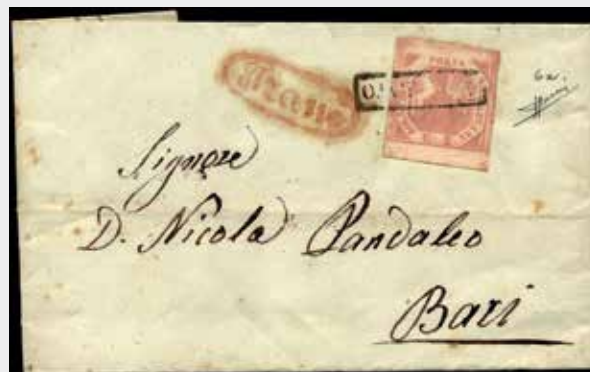 Trani
POSTA
6a.
Signore
D. Nicola Pandaleo
Bari